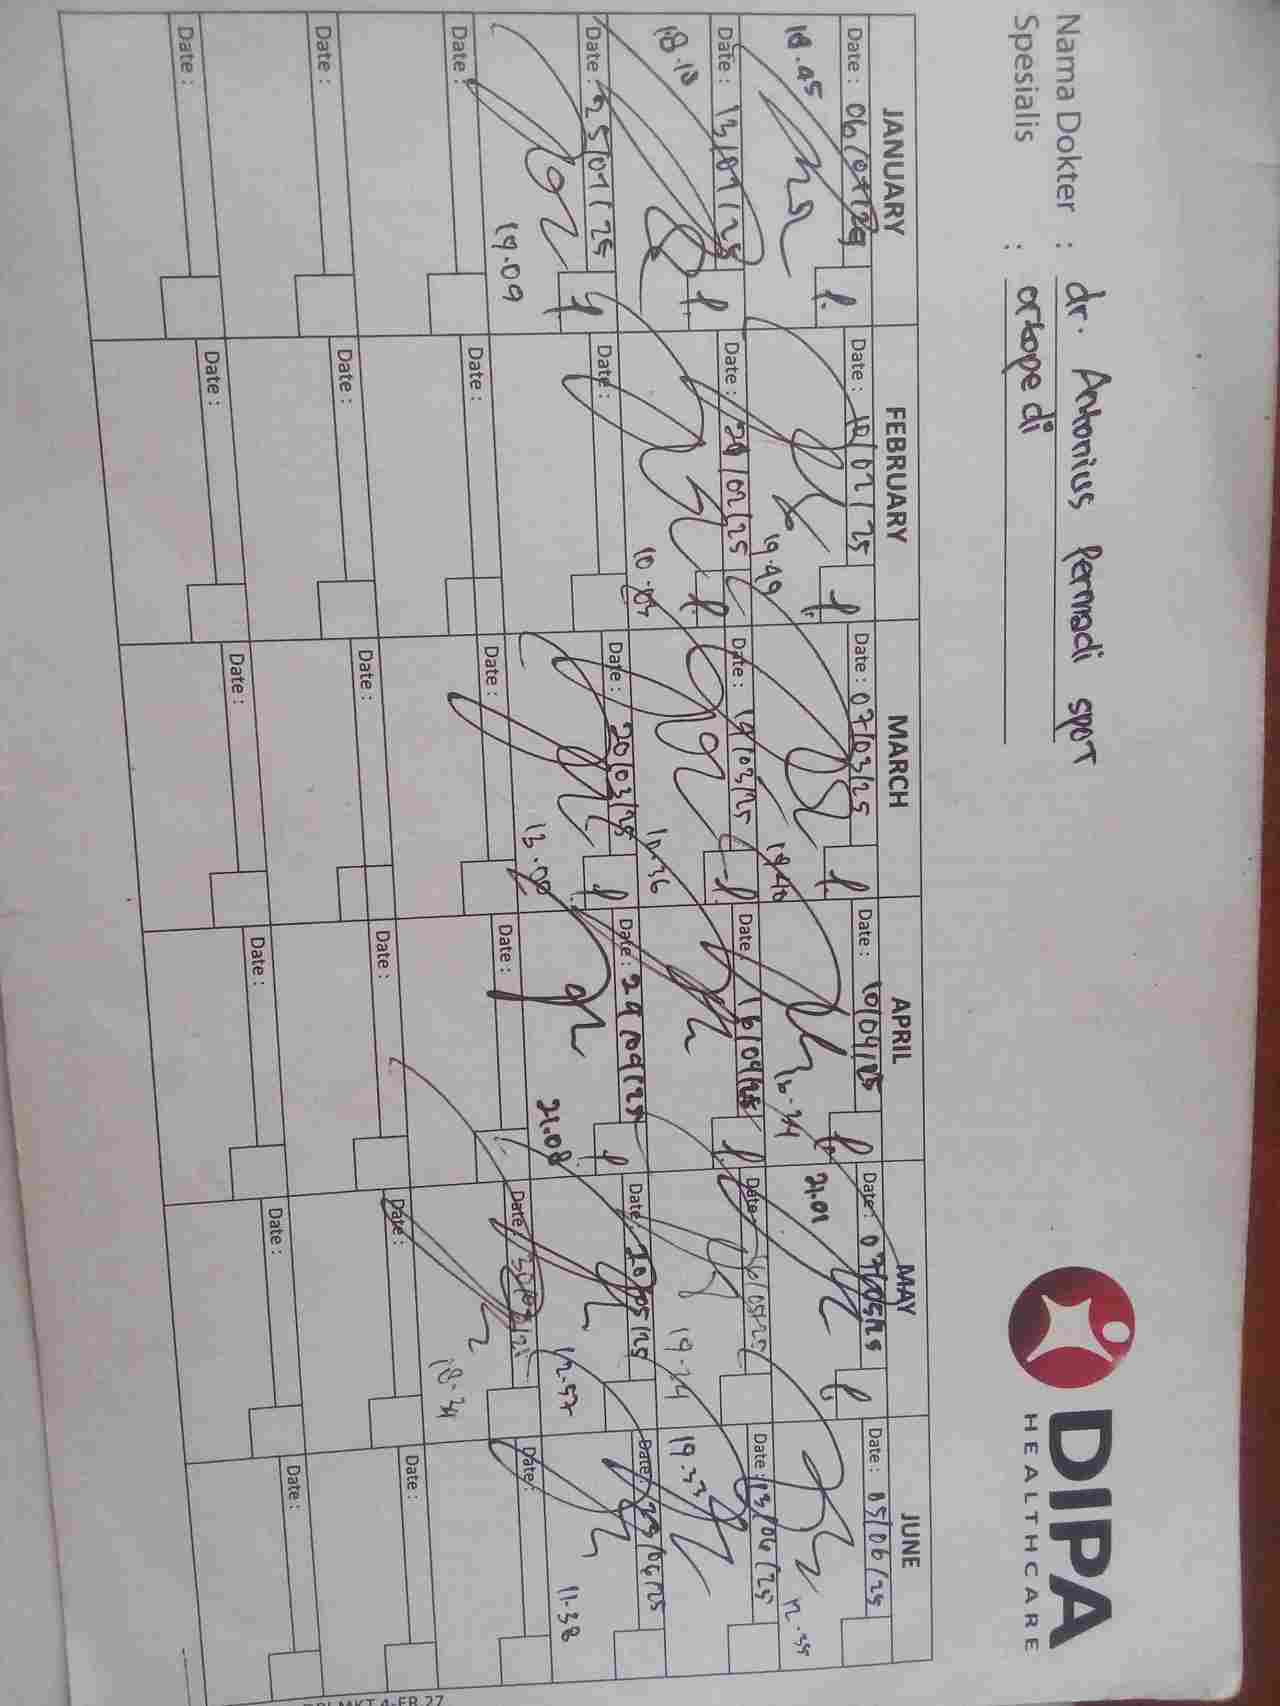 Nama Dokter : dr. Antonius Permadi SpOT
Spesialis : ortopedi
DIPA
HEALTHCARE
JANUARY FEBRUARY MARCH APRIL MAY JUNE
Date : Date : 10/02/25 Date : 07/03/25 Date : 10/04/25 Date : 07/05/25 Date : 05/06/25
18.45 19.49 19.40 21.01 12.35
Date : 13/01/25 Date : 20/02/25 Date : 14/03/25 Date : 16/04/25 Date : 16/05/25 Date : 13/06/25
18.18 10.03 10.36 19.24 19.33
Date : 25/01/25 Date : Date : 20/03/25 Date : 29/04/25 Date : 20/05/25 Date : 23/06/25
19.09 13.00 21.08 12.57 11.38
Date : Date : Date : Date : Date : Date :
18.34
Date : Date : Date : Date : Date : Date :
Date : Date : Date : Date : Date : Date :